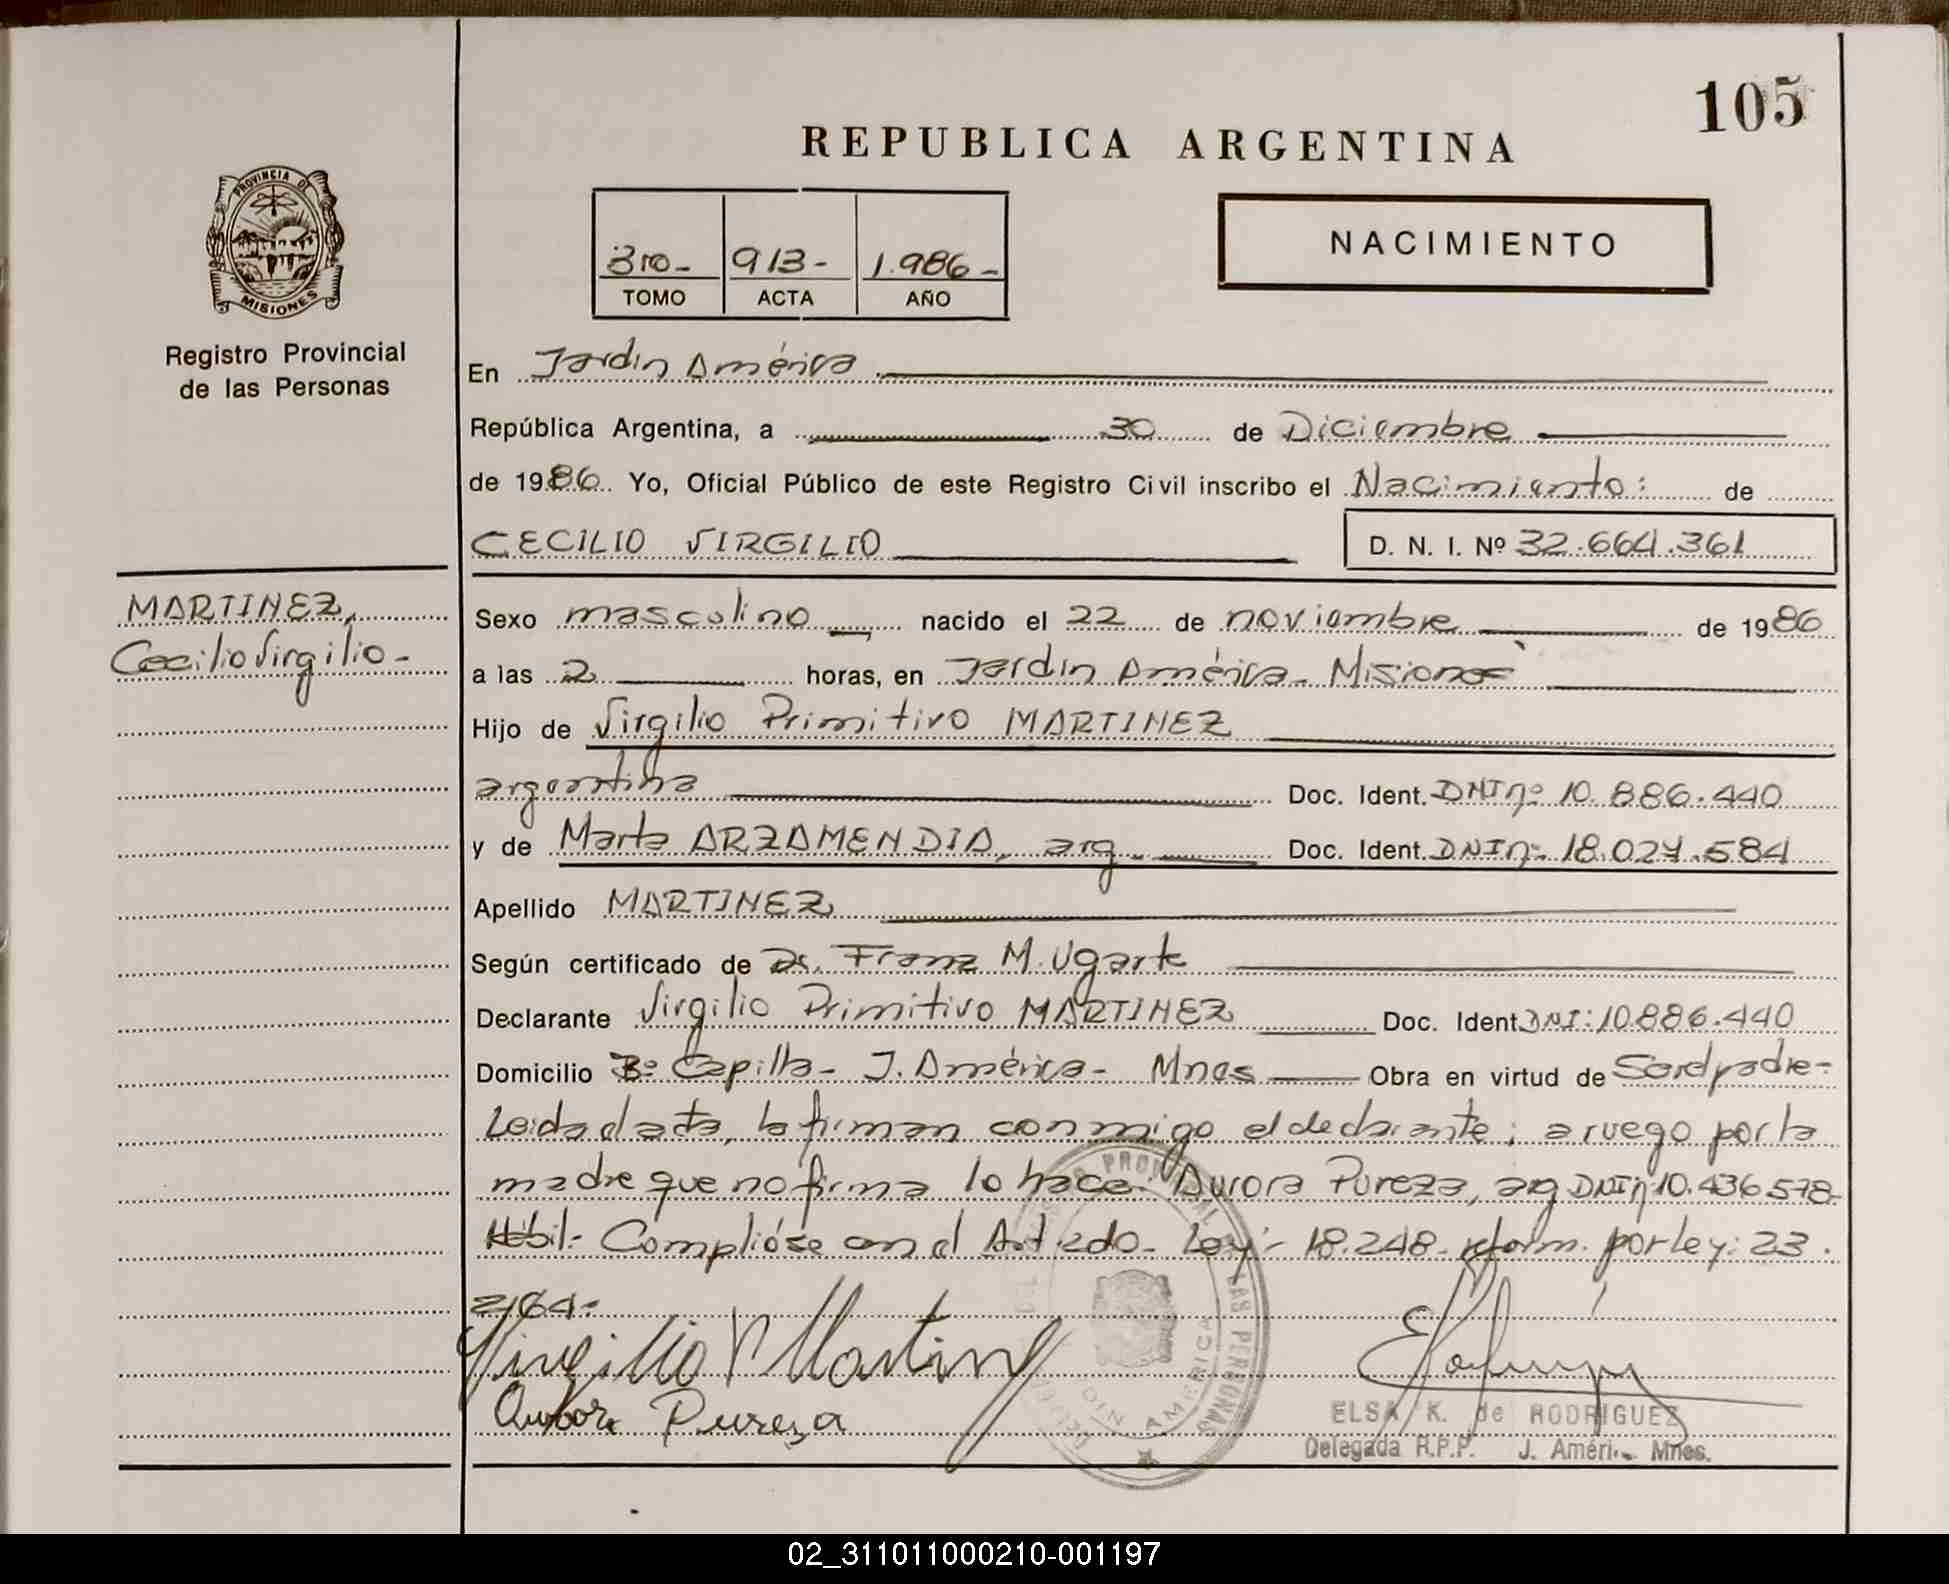 105
REPUBLICA ARGENTINA
PROVINCIA DE
MISIONES
Registro Provincial
de las Personas
3ro- 913- 1.986-
TOMO ACTA AÑO
NACIMIENTO
En Jardín América
República Argentina, a 30 de Diciembre
de 1986. Yo, Oficial Público de este Registro Civil inscribo el Nacimiento: de
CECILIO VIRGILIO D. N. I. Nº 32.664.361
MARTINEZ,
Cecilio Virgilio-
Sexo masculino nacido el 22 de noviembre de 1986
a las 2 horas, en Jardín América- Misiones
Hijo de Virgilio Primitivo MARTINEZ
argentina Doc. Ident. DNI nº 10.886.440
y de Marta ARZAMENDIA, arg. Doc. Ident. DNI nº 18.027.584
Apellido MARTINEZ
Según certificado de Dr. Franz M. Ugarte
Declarante Virgilio Primitivo MARTINEZ Doc. Ident DNI: 10.886.440
Domicilio Bº Capilla- J. América- Mnes Obra en virtud de Serel padre-
Leída el acta, la firman conmigo el declarante; a ruego por la
madre que no firma lo hace: Aurora Pureza, arg DNI nº 10.436.578-
Hábil- Complióse con el Art 2do- Ley:- 18.248- reform. por Ley: 23.
2/64-
Virgilio P Martinez
Aurora Pureza
REGISTRO PROVINCIAL DE LAS PERSONAS
JARDIN AMERICA
ELSA K. de RODRIGUEZ
Delegada R.P.P. J. Améri Mnes.
02_311011000210-001197